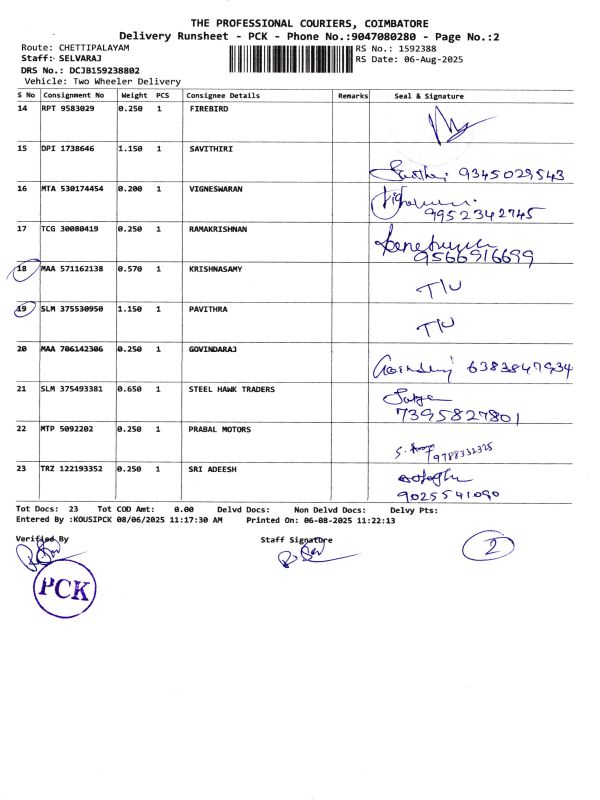 THE PROFESSIONAL COURIERS, COIMBATORE
Delivery Runsheet - PCK - Phone No.:9047080280 - Page No.:2
Route: CHETTIPALAYAM RS No.: 1592388
Staff: SELVARAJ RS Date: 06-Aug-2025
DRS No.: DCJB159238802
Vehicle: Two Wheeler Delivery
S No Consignment No Weight PCS Consignee Details Remarks Seal & Signature
14 RPT 9583029 0.250 1 FIREBIRD
15 DPI 1738646 1.150 1 SAVITHIRI
9345029543
16 MTA 530174454 0.200 1 VIGNESWARAN
9952342745
17 TCG 30080419 0.250 1 RAMAKRISHNAN
9566916699
18 MAA 571162138 0.570 1 KRISHNASAMY
T/U
19 SLM 375530950 1.150 1 PAVITHRA
T/U
20 MAA 706142306 0.250 1 GOVINDARAJ
6383847934
21 SLM 375493381 0.650 1 STEEL HAWK TRADERS
7395827801
22 MTP 5092202 0.250 1 PRABAL MOTORS
9788332325
23 TRZ 122193352 0.250 1 SRI ADEESH
9025541090
Tot Docs: 23 Tot COD Amt: 0.00 Delvd Docs: Non Delvd Docs: Delvy Pts:
Entered By :KOUSIPCK 08/06/2025 11:17:30 AM Printed On: 06-08-2025 11:22:13
Verified By Staff Signature
2
PCK